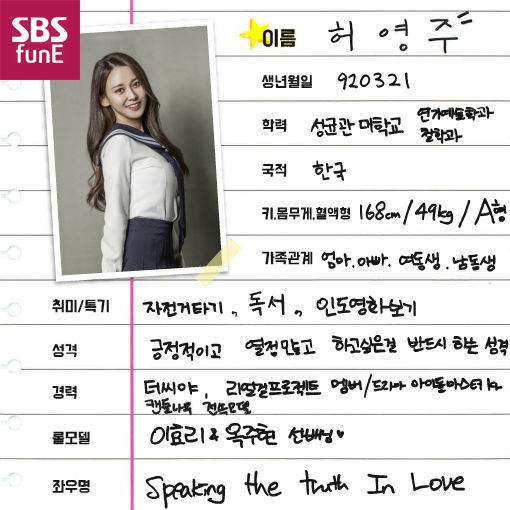 SBS
funE
이름 허영주
생년월일 920321
학력 성균관 대학교 연기예술학과
철학과
국적 한국
키,몸무게,혈액형 168cm/49kg/A형
가족관계 엄마.아빠. 여동생.남동생
취미/특기 자전거타기, 독서, 인도영화보기
성격 긍정적이고 열정많고 하고싶은걸 반드시 하는 성격
경력 더씨야, 리얼걸프로젝트 멤버/드라마 아이돌마스터
전속모델
롤모델 이효리 & 옥주현 선배님♥
좌우명 Speaking the truth In Love